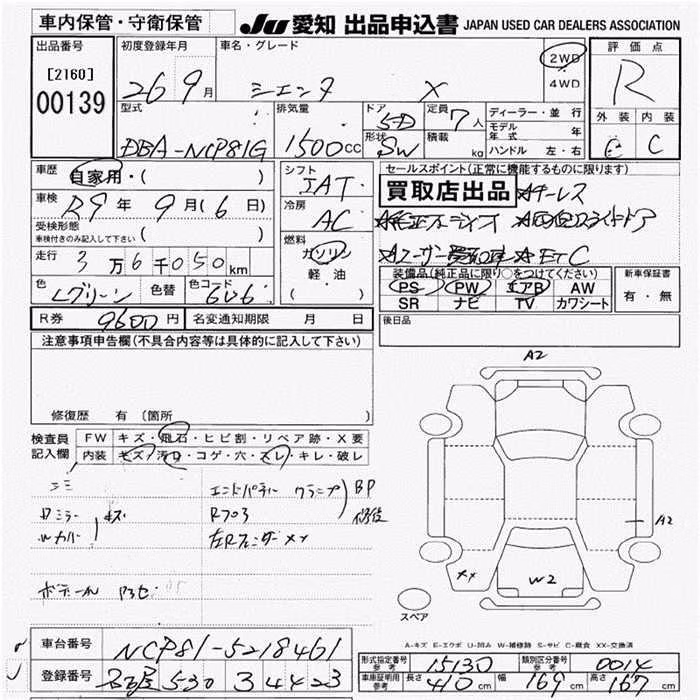 車内保管・守衛保管
JU 愛知 出品申込書 JAPAN USED CAR DEALERS ASSOCIATION
出品番号 初度登録年月 車名・グレード 評価点
[2160] 26 9月 シエンタ X 2WD 4WD R
00139
型式 排気量 ドア 5-D 定員 7人 ディーラー・並行 外装 内装
DBA-NCP81G 1500cc 形状 SW 積載 kg モデル年式 年 C C
ハンドル 左・右
車歴 自家用・( ) シフト IAT セールスポイント(正常に機能するものに限ります)
車検 R9年 9月(6日) 冷房 AC 買取店出品 ☆キーレス
受検形態 ( )
車検付きのみ記入して下さい
☆ユーザー買取車 ☆ETC
走行 3万6千050km 燃料 ガソリン 軽油 ( )
装備品(純正品に限り○をつけてください) 新車保証書
色 Lグリーン 色替 色コード 6U6 PS PW エアB AW 有・無
SR ナビ TV カワシート
R券 9600円 名変通知期限 月 日 後日品
注意事項申告欄(不具合内容等は具体的に記入して下さい)
A2
修復歴 有 (箇所
検査員記入欄 FW キズ・飛石・ヒビ割・リペア跡・X要
内装 キズ・汚れ・コゲ・穴・スレ・キレ・破レ
エンドパネル クランプ BP
Rミラー キズ R703 修復
Wカバー 左Rフェンダー XX
A2
XX W2
スペア
A-キズ E-エクボ U-凹み W-補修跡 S-サビ C-腐食 XX-交換済
車台番号 NCP81-5218461
型式指定番号 参考 15130 類別区分番号 参考 0014
登録番号 名古屋 530 34423
車庫証明用 参考 長さ 410cm 幅 169cm 高さ 167cm